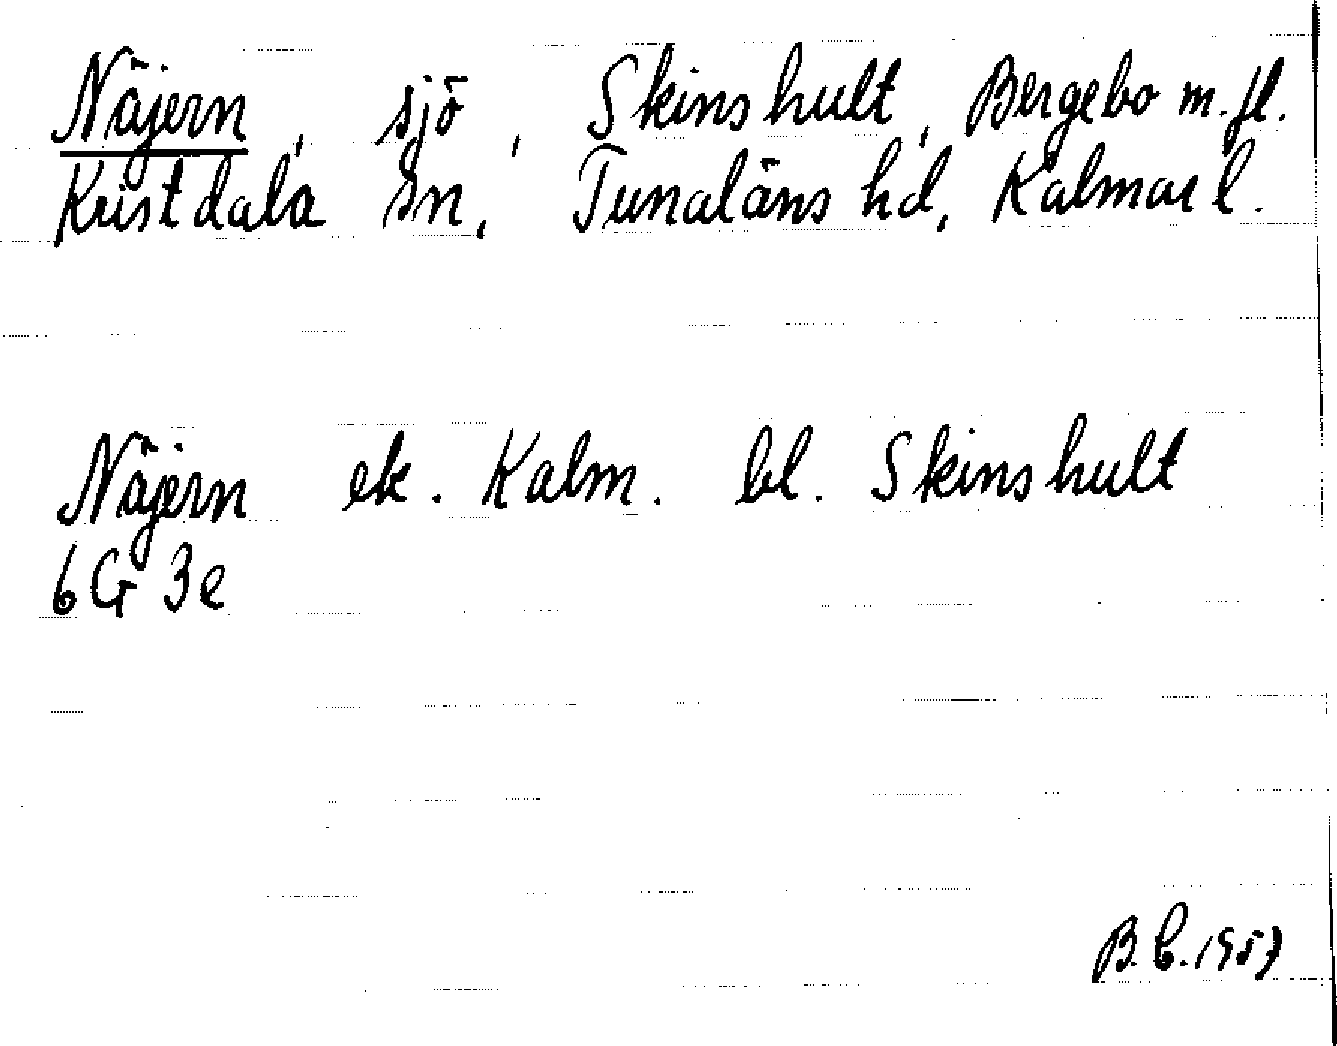 Näjern, sjö, Skinshult, Bergebo m.fl.
Kristdala sn, Tunaläns hd, Kalmar l.
Näjern ek. Kalm. bl. Skinshult
6G 3e
B.C. 1957